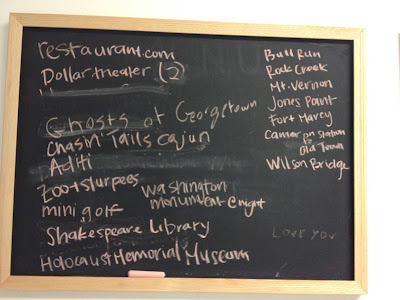 restaurant.com
Dollar theater (2)
Ghosts of Georgetown
Chasin' Tails cajun
Aditi
Zoo + slurpees
mini golf
Washington
monument @ night
Shakespeare Library
Holocaust Memorial Museum
Bull Run
Rock Creek
Mt. Vernon
Jones Point
Fort Marcy
Cameron Station
to
Old Town
Wilson Bridge
Love you